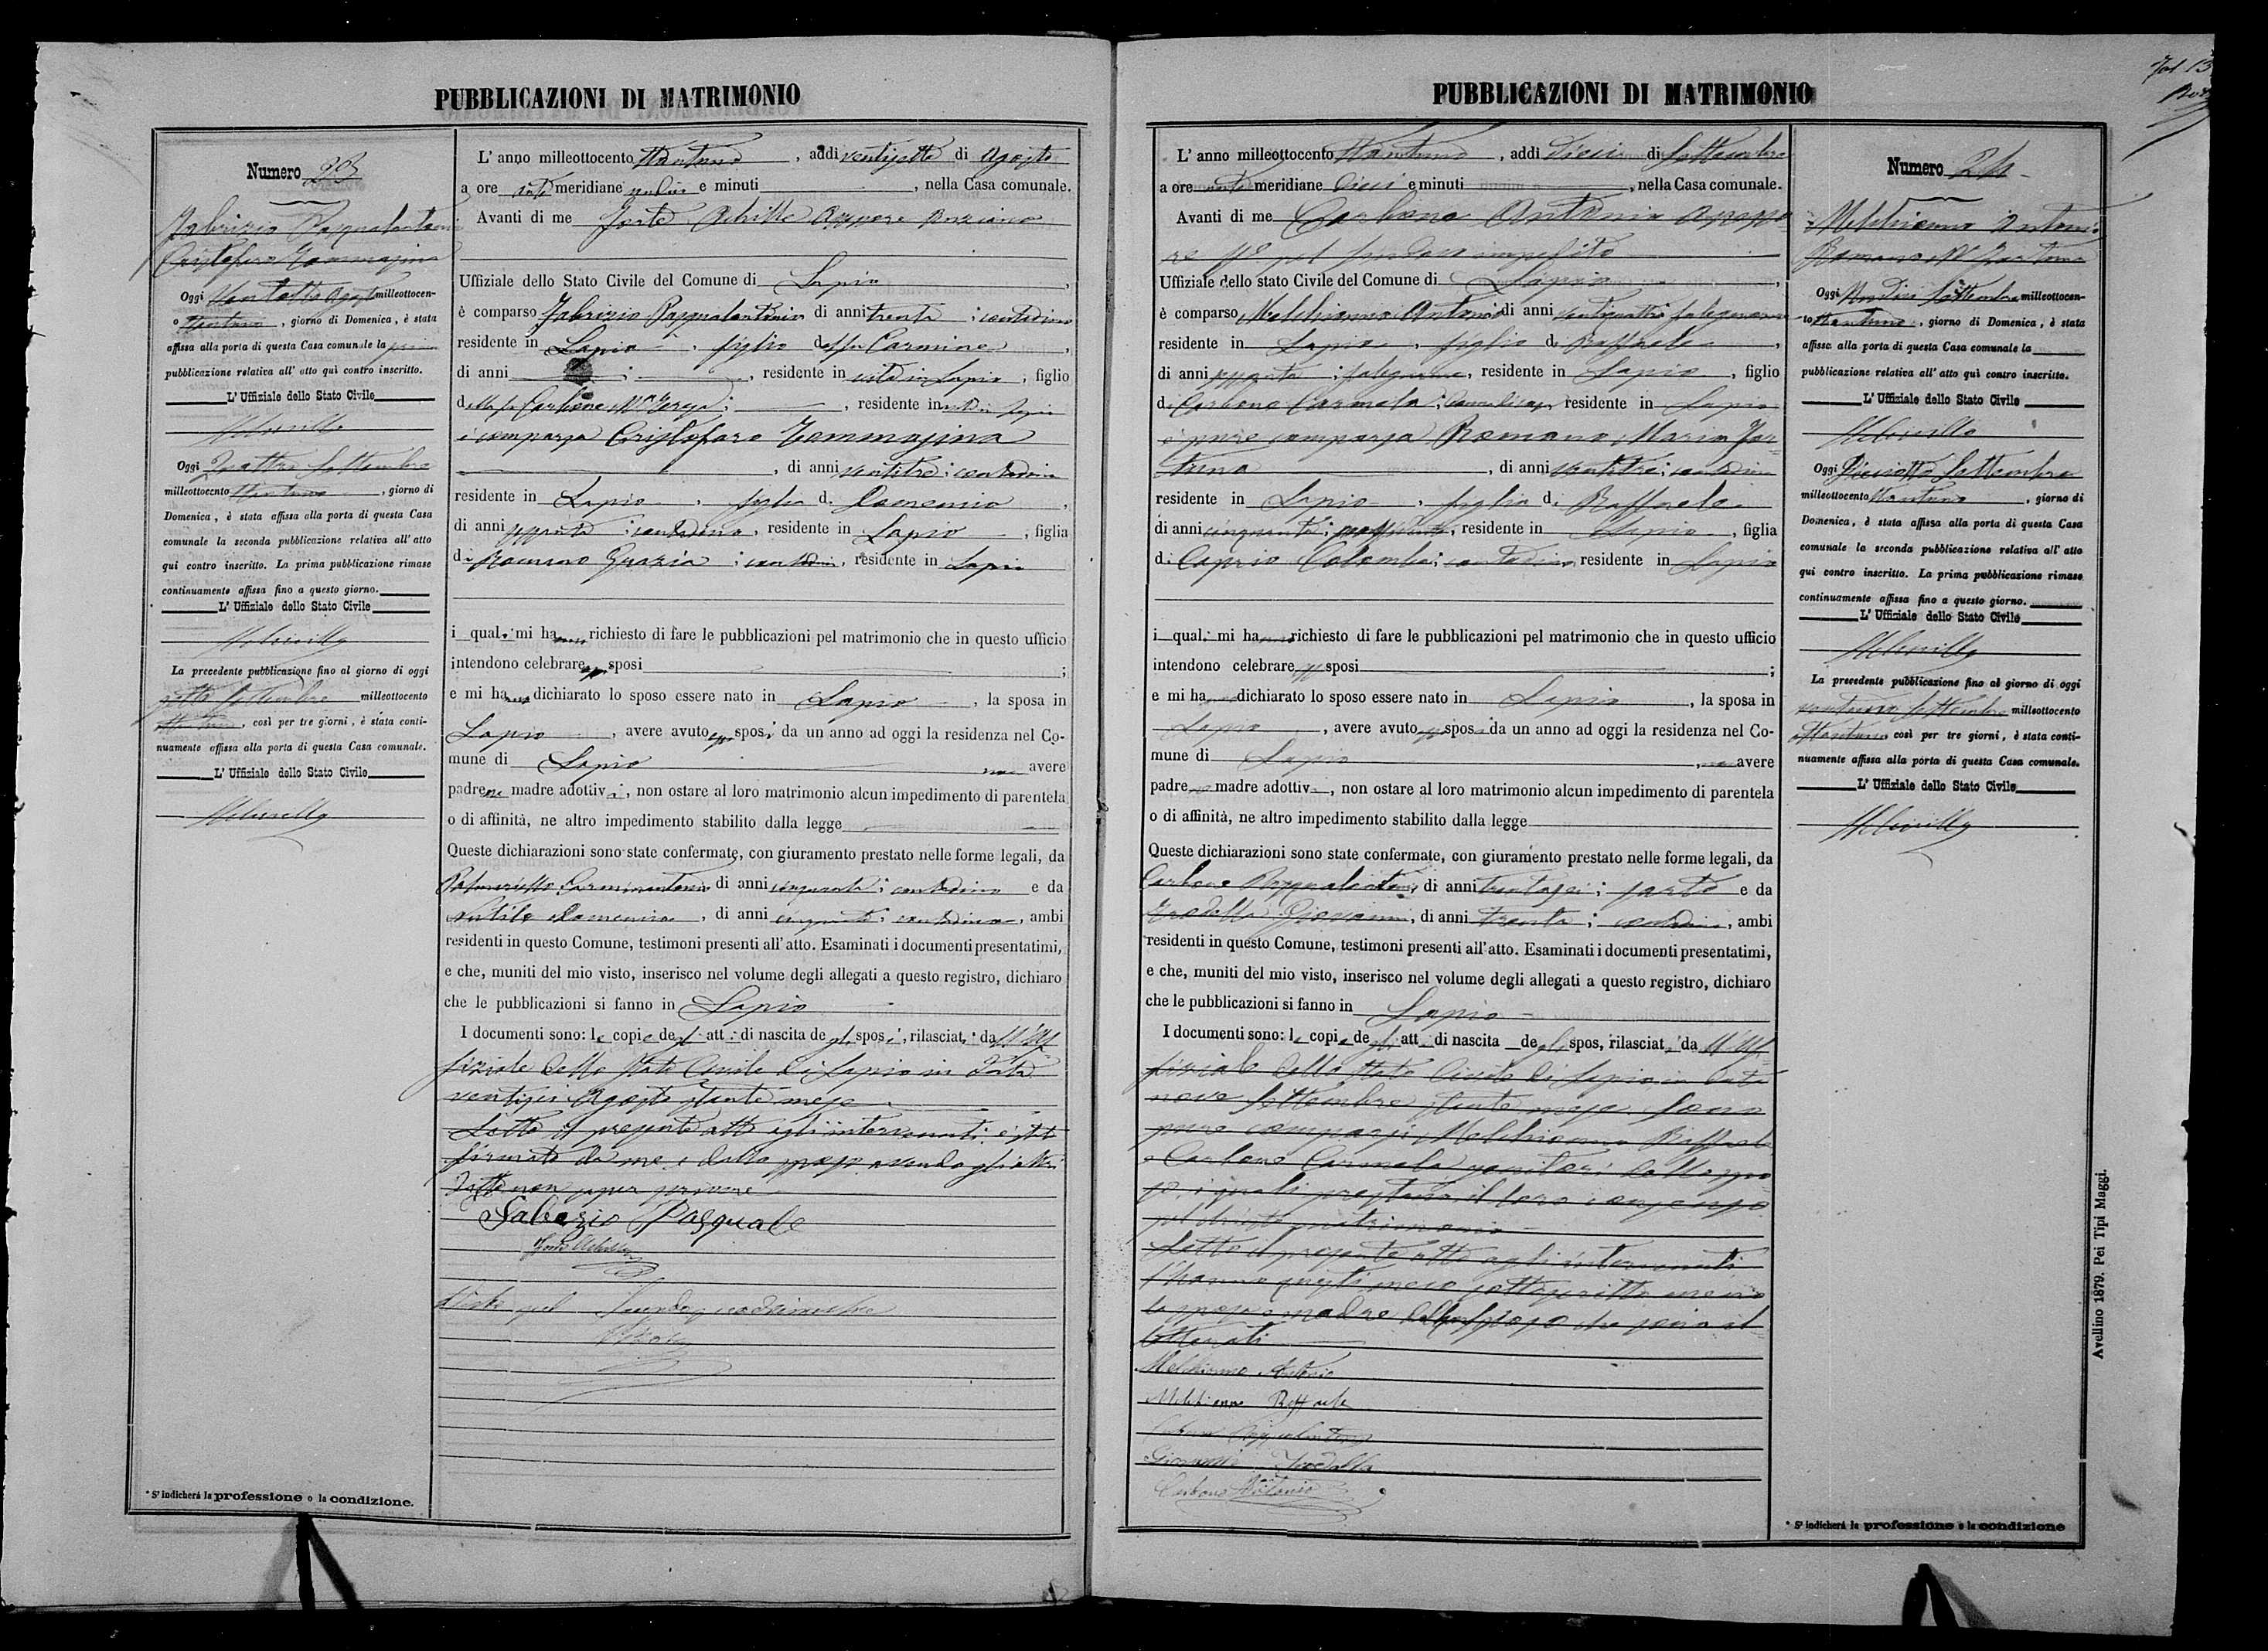 PUBBLICAZIONI DI MATRIMONIO
Numero 23
Fabrizio Pasqualantonio
Cristofaro Tommasina
Oggi Ventotto Agosto milleottocen-
o ottantuno, giorno di Domenica, è stata
affissa alla porta di questa Casa comunale la prima
pubblicazione relativa all' atto quì contro inscritto.
L' Uffiziale dello Stato Civile
Oggi Quattro Settembre
milleottocento ottantuno, giorno di
Domenica, è stata affissa alla porta di questa Casa
comunale la seconda pubblicazione relativa all' atto
qui contro inscritto. La prima pubblicazione rimase
continuamente affissa fino a questo giorno.
L' Uffiziale dello Stato Civile
La precedente pubblicazione fino al giorno di oggi
sette Settembre milleottocento
ottantuno, così per tre giorni, è stata conti-
nuamente affissa alla porta di questa Casa comunale.
L' Uffiziale dello Stato Civile
* Si indicherà la professione o la condizione.
L' anno milleottocento ottantuno, addi ventisette di Agosto
a ore meridiane e minuti , nella Casa comunale.
Avanti di me Forte Achille Assessore Anziano
Uffiziale dello Stato Civile del Comune di Lapio,
è comparso Fabrizio Pasqualantonio di anni trenta; contadino
residente in Lapio, figlio del fu Carmine,
di anni ; , residente in vita in Lapio, figlio
della fu Carbone Ma Teresa; , residente in vita in Lapio
è comparsa Cristofaro Tommasina
, di anni ventitre; contadina
residente in Lapio, figlia di Domenico,
di anni sessanta; contadino, residente in Lapio, figlia
di Grazia; contadina, residente in Lapio
i quali mi hanno richiesto di fare le pubblicazioni pel matrimonio che in questo ufficio
intendono celebrare essi sposi ;
e mi hanno dichiarato lo sposo essere nato in Lapio, la sposa in
Lapio, avere avuto essi sposi da un anno ad oggi la residenza nel Co-
mune di Lapio non avere
padre ne madre adottivi, non ostare al loro matrimonio alcun impedimento di parentela
o di affinità, ne altro impedimento stabilito dalla legge
Queste dichiarazioni sono state confermate, con giuramento prestato nelle forme legali, da
Carminantonio di anni cinquanta; contadino e da
, di anni cinquanta; contadino, ambi
residenti in questo Comune, testimoni presenti all' atto. Esaminati i documenti presentatimi,
e che, muniti del mio visto, inserisco nel volume degli allegati a questo registro, dichiaro
che le pubblicazioni si fanno in Lapio
I documenti sono: le copie degli atti di nascita degli sposi, rilasciati dall'Uf-
fiziale dello Stato Civile di Lapio in data
ventisei Agosto stante mese
Letto il presente atto agli intervenuti è stato
firmato da me e dallo sposo avendo gli altri
detto non saper scrivere
Fabrizio Pasquale
Forte Achille
Visto pel secondo quadrimestre
PUBBLICAZIONI DI MATRIMONIO
Fol. 13
L' anno milleottocento ottantuno, addi dieci di Settembre
a ore meridiane dieci e minuti , nella Casa comunale.
Avanti di me Carbone Antonio Assesso-
re ff. pel Sindaco impedito
Uffiziale dello stato Civile del Comune di Lapio,
è comparso Melchionna Antonio di anni ventiquattro falegname
residente in Lapio, figlio di Raffaele,
di anni sessanta; falegname, residente in Lapio, figlio
di Carbone Carmela; residente in Lapio
è pure comparsa Romano Maria For-
tuna, di anni ventitre; contadina
residente in Lapio, figlia di Raffaele
di anni cinquanta; , residente in Lapio, figlia
di Caprio Colomba; contadina, residente in Lapio
i quali mi hanno richiesto di fare le pubblicazioni pel matrimonio che in questo ufficio
intendono celebrare essi sposi ;
e mi hanno dichiarato lo sposo essere nato in Lapio, la sposa in
Lapio, avere avuto essi sposi da un anno ad oggi la residenza nel Co-
mune di Lapio, non avere
padre o madre adottivi, non ostare al loro matrimonio alcun impedimento di parentela
o di affinità, ne altro impedimento stabilito dalla legge
Queste dichiarazioni sono state confermate, con giuramento prestato nelle forme legali, da
Carbone Pasqualantonio, di anni trentasei; sarto e da
Trodella Giovanni, di anni trenta; contadino, ambi
residenti in questo Comune, testimoni presenti all' atto. Esaminati i documenti presentatimi,
e che, muniti del mio visto, inserisco nel volume degli allegati a questo registro, dichiaro
che le pubblicazioni si fanno in Lapio
I documenti sono: le copie degli atti di nascita degli sposi, rilasciati dall'Uf-
fiziale dello Stato Civile di Lapio in data
nove Settembre stante mese. Sono
pure comparsi Melchionna Raffaele
e Carbone Carmela genitori dello spo-
so, i quali prestano il loro consenso
pel matrimonio
Letto il presente atto agli intervenuti
l'hanno questi meco sottoscritto meno
la sposa e madre dello sposo che sono il-
letterati
Melchionna Antonio
Melchionna Raffaele
Carbone Pasqualantonio
Giovanni Trodella
Carbone Antonio
Numero 24
Melchionna Antonio
Romano Ma Fortuna
Oggi Undici Settembre milleottocen-
to ottantuno, giorno di Domenica, è stata
affissa alla porta di questa Casa comunale la
pubblicazione relativa all' atto quì contro inscritto.
L' Uffiziale dello Stato Civile
Oggi Diciotto Settembre
milleottocento ottantuno, giorno di
Domenica, è stata affissa alla porta di questa Casa
comunale la seconda pubblicazione relativa all' atto
qui contro inscritto. La prima pubblicazione rimase
continuamente affissa fino a questo giorno.
L' Uffiziale dello Stato Civile
La precedente pubblicazione fino al giorno di oggi
ventuno Settembre milleottocento
ottantuno così per tre giorni, è stata conti-
nuamente affissa alla porta di questa Casa comunale.
L' Uffiziale dello Stato Civile
* Si indicherà la professione o la condizione
Avellino 1879. Pei Tipi Maggi.